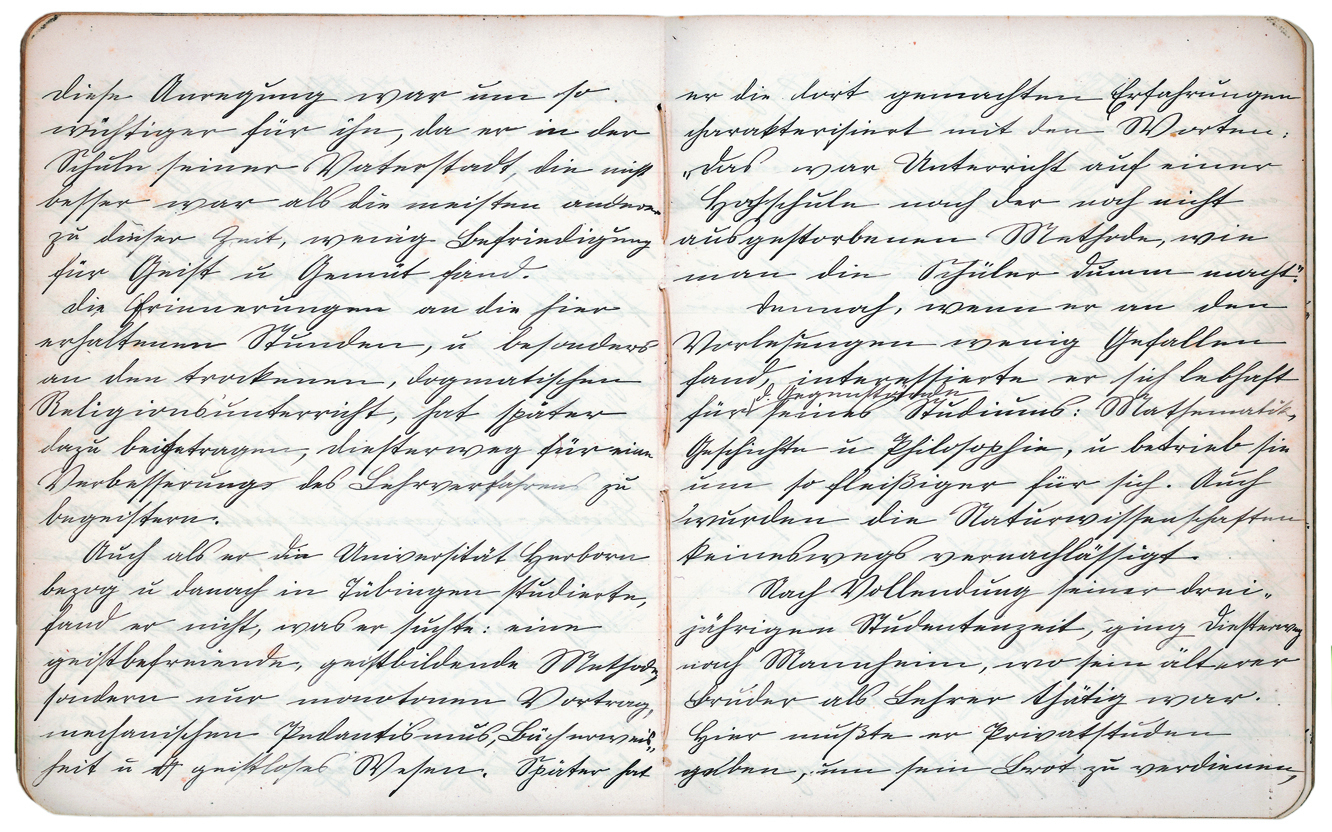 Diese Anregung war um so
wichtiger für ihn, da er in der
Schule seiner Vaterstadt, die nicht
besser war als die meisten anderen
zu dieser Zeit, wenig Befriedigung
für Geist u Gemüt fand.
Die Erinnerungen an die hier
erhaltenen Stunden, u besonders
an den trockenen, dogmatischen
Religionsunterricht, hat später
dazu beigetragen, Diesterweg für eine
Verbesserung des Lehrverfahrens zu
begeistern.
Auch als er die Universität Herborn
bezog u danach in Tübingen studierte,
fand er nicht, was er suchte: eine
geistbefreiende, geistbildende Methode,
sondern nur monotonen Vortrag,
mechanischen Pedantismus, Bücherweis„
heit u geistloses Wesen. Später hat
er die dort gemachten Erfahrungen
charakterisiert mit den Worten:
„Das war Unterricht auf einer
Hochschule nach der noch nicht
ausgestorbenen Methode, wie
man die Schüler dumm macht."
Dennoch, wenn er an den
Vorlesungen wenig Gefallen
fand, interessierte er sich lebhaft
für d. Gegenstände seines Studiums: Mathematik,
Geschichte u Philosophie, u betrieb sie
um so fleißiger für sich. Auch
wurden die Naturwissenschaften
keineswegs vernachlässigt.
Nach Vollendung seiner drei„
jährigen Studentenzeit, ging Diesterweg
nach Mannheim, wo sein älterer
Bruder als Lehrer thätig war.
Hier mußte er Privatstuden
geben, um sein Brot zu verdienen,